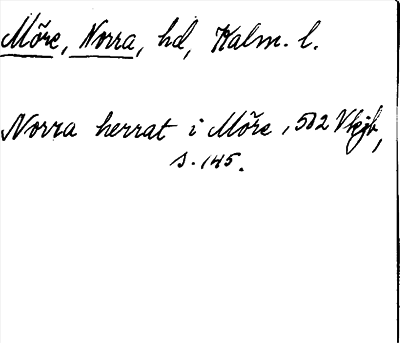 Möre, Norra, hd, Kalm. l.
Norra herrat i Möre, 502 Vkjb,
s. 145.